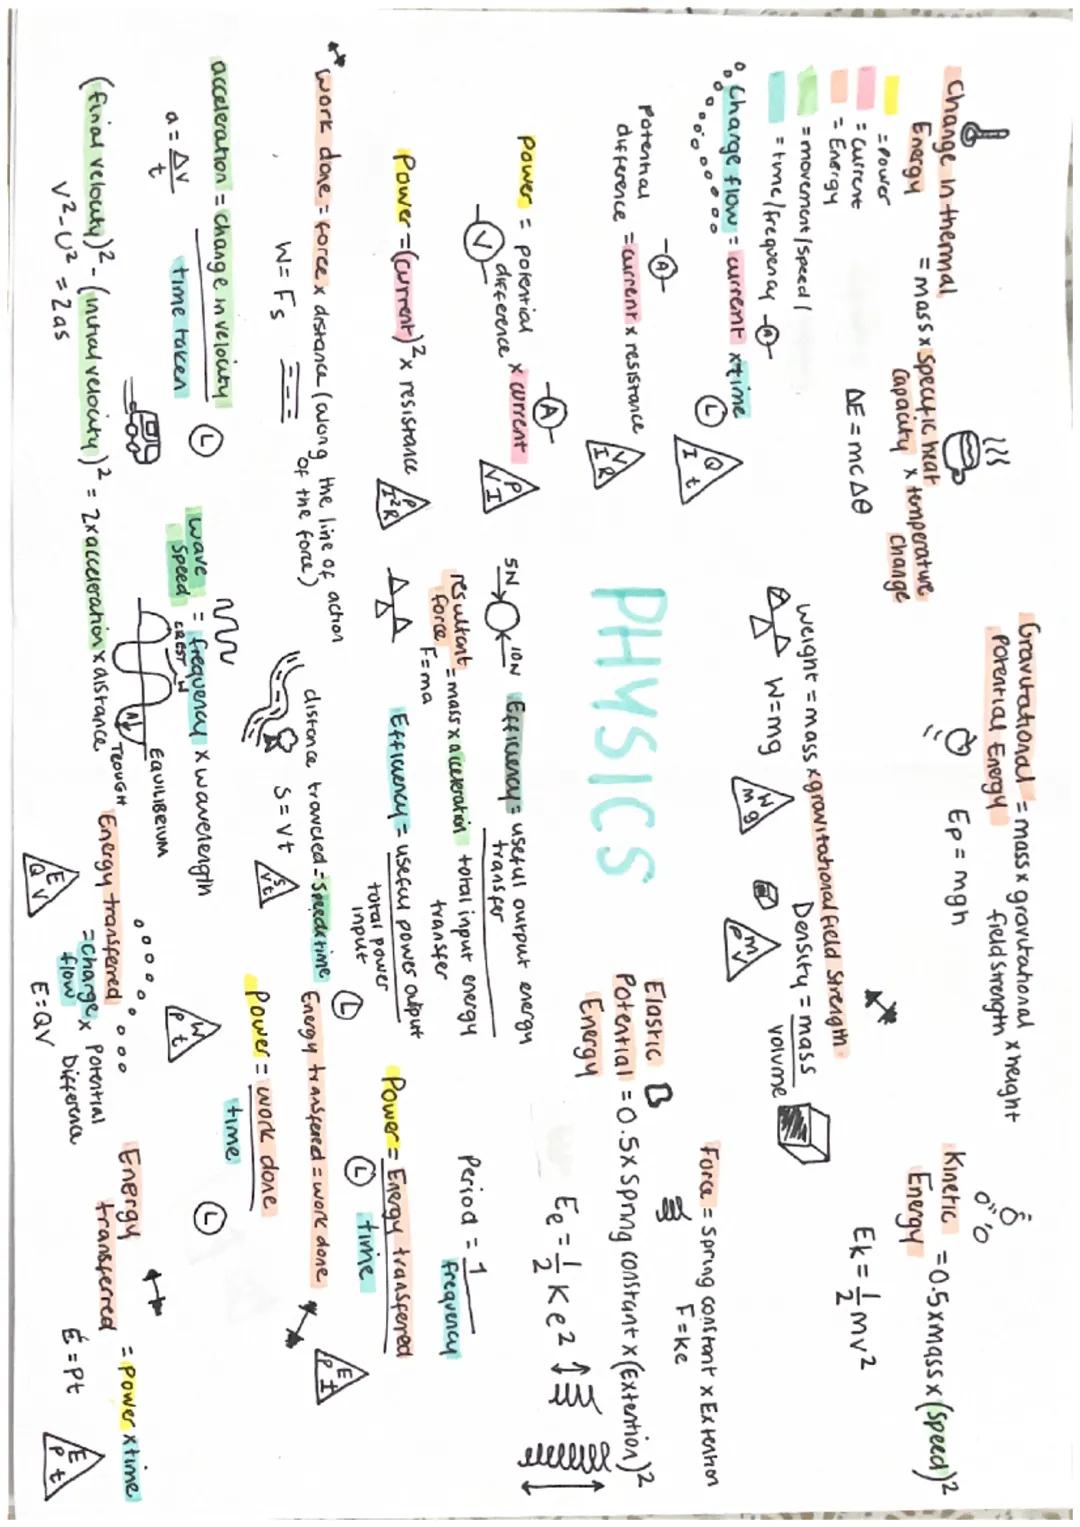 Change in thermal
Energy
= mass x specific heat
capacity x temperature
change
ΔE = mcΔθ
= Power
= current
= Energy
= movement/speed/
= time/frequency
A
Charge flow = current x time
L
Q
I t
potential
difference = current x resistance
A
V
I R
Power = potential
difference x current
V
A
P
V I
Power = (current)² x resistance
P
I²R
work done = force x distance (along the line of action
of the force)
W = Fs
acceleration = change in velocity
time taken
a = Δv
t
L
(final velocity)² - (initial velocity)² = 2 x acceleration x distance
v² - u² = 2as
Gravitational
Potential Energy
= mass x gravitational
field strength x height
Ep = mgh
weight = mass x gravitational field strength
W = mg
W
m g
Density = mass
volume
m
ρ V
PHYSICS
5N
10N
resultant
force = mass x acceleration
F = ma
Efficiency = useful output energy
transfer
total input energy
transfer
Efficiency = useful power output
total power
input
distance traveled = speed x time
L
S = vt
S
v t
wave
speed = frequency x wavelength
CREST
W
A
EQUILIBRIUM
TROUGH
Energy transferred
= charge x potential
flow Difference
E = QV
E
Q V
Kinetic
Energy
= 0.5 x mass x (speed)²
Ek = 1 mv²
2
Force = spring constant x Extention
F = ke
Elastic
Potential = 0.5 x spring constant x (Extention)²
Energy
Ee = 1 Ke²
2
Period = 1
frequency
Power = Energy transfered
time
L
E
P t
Energy transfered = work done
Power = work done
time
L
W
P t
Energy
transferred = power x time
E = Pt
E
P t